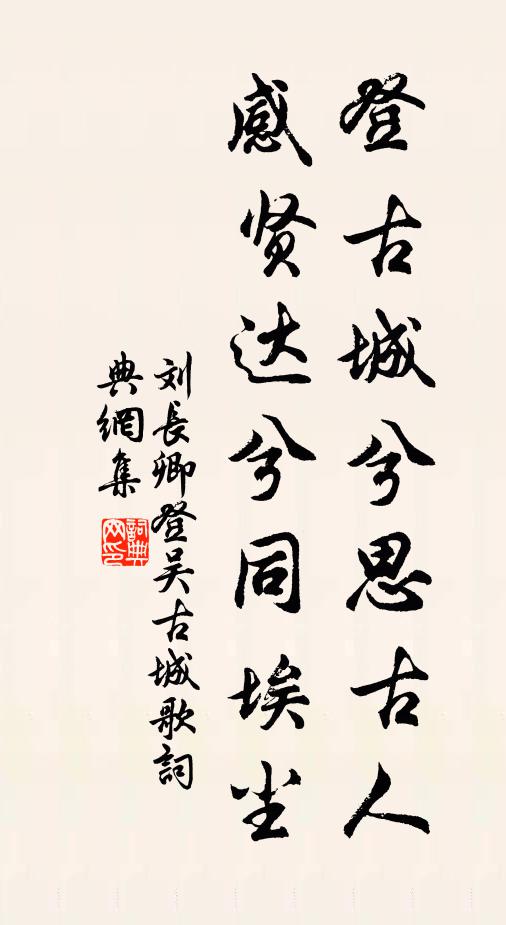 登古城兮思古人
感贤达兮同埃尘
刘長卿登吴古城歌詞
典網集
詞典网印